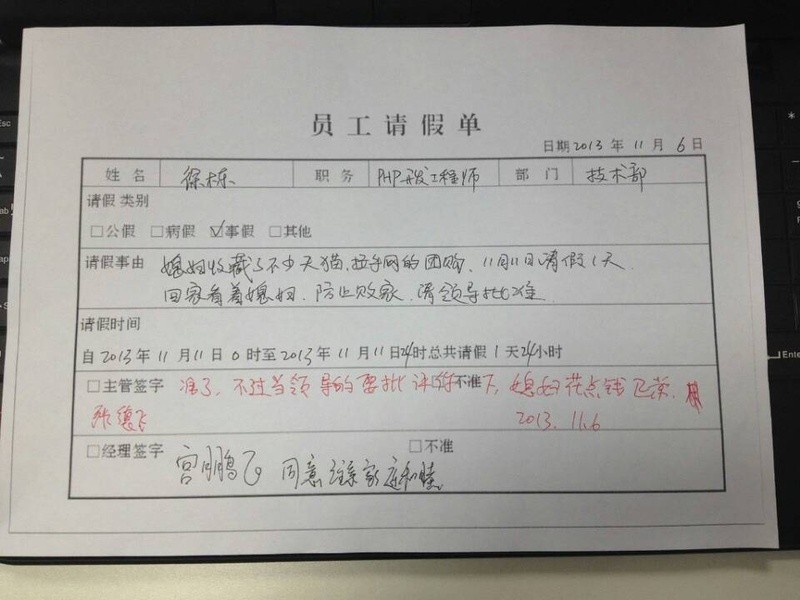 员工请假单
日期2013年11月6日
姓名 徐栋 职务 PHP开发工程师 部门 技术部
请假类别
□公假 □病假 ☑事假 □其他
请假事由 媳妇收藏了不少天猫、拉手网的团购,11月11日请假1天
回家看着媳妇,防止败家,请领导批准
请假时间
自2013年11月11日0时至2013年11月11日24时总共请假1天24小时
□主管签字 准了,不过当领导的要批评你不准下,媳妇花点钱正常,
2013.11.6
□经理签字 □不准
宫鹏飞 同意 家庭和睦